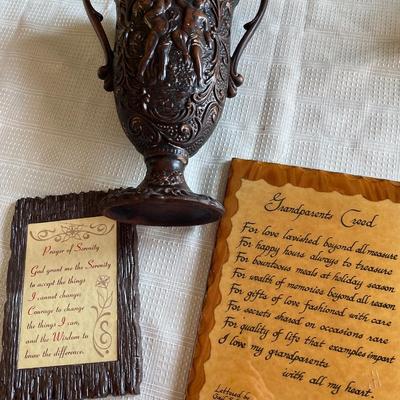 Prayer of Serenity
God grant me the Serenity
to accept the things
I cannot change;
Courage to change
the things I can,
and the Wisdom to
know the difference.
Grandparents Creed
For love lavished beyond all measure
For happy hours always to treasure
For bounteous meals at holiday season
For wealth of memories beyond all reason
For gifts of love fashioned with care
For secrets shared on occasions rare
For quality of life that examples impart
I love my grandparents
with all my heart.
Lettered by